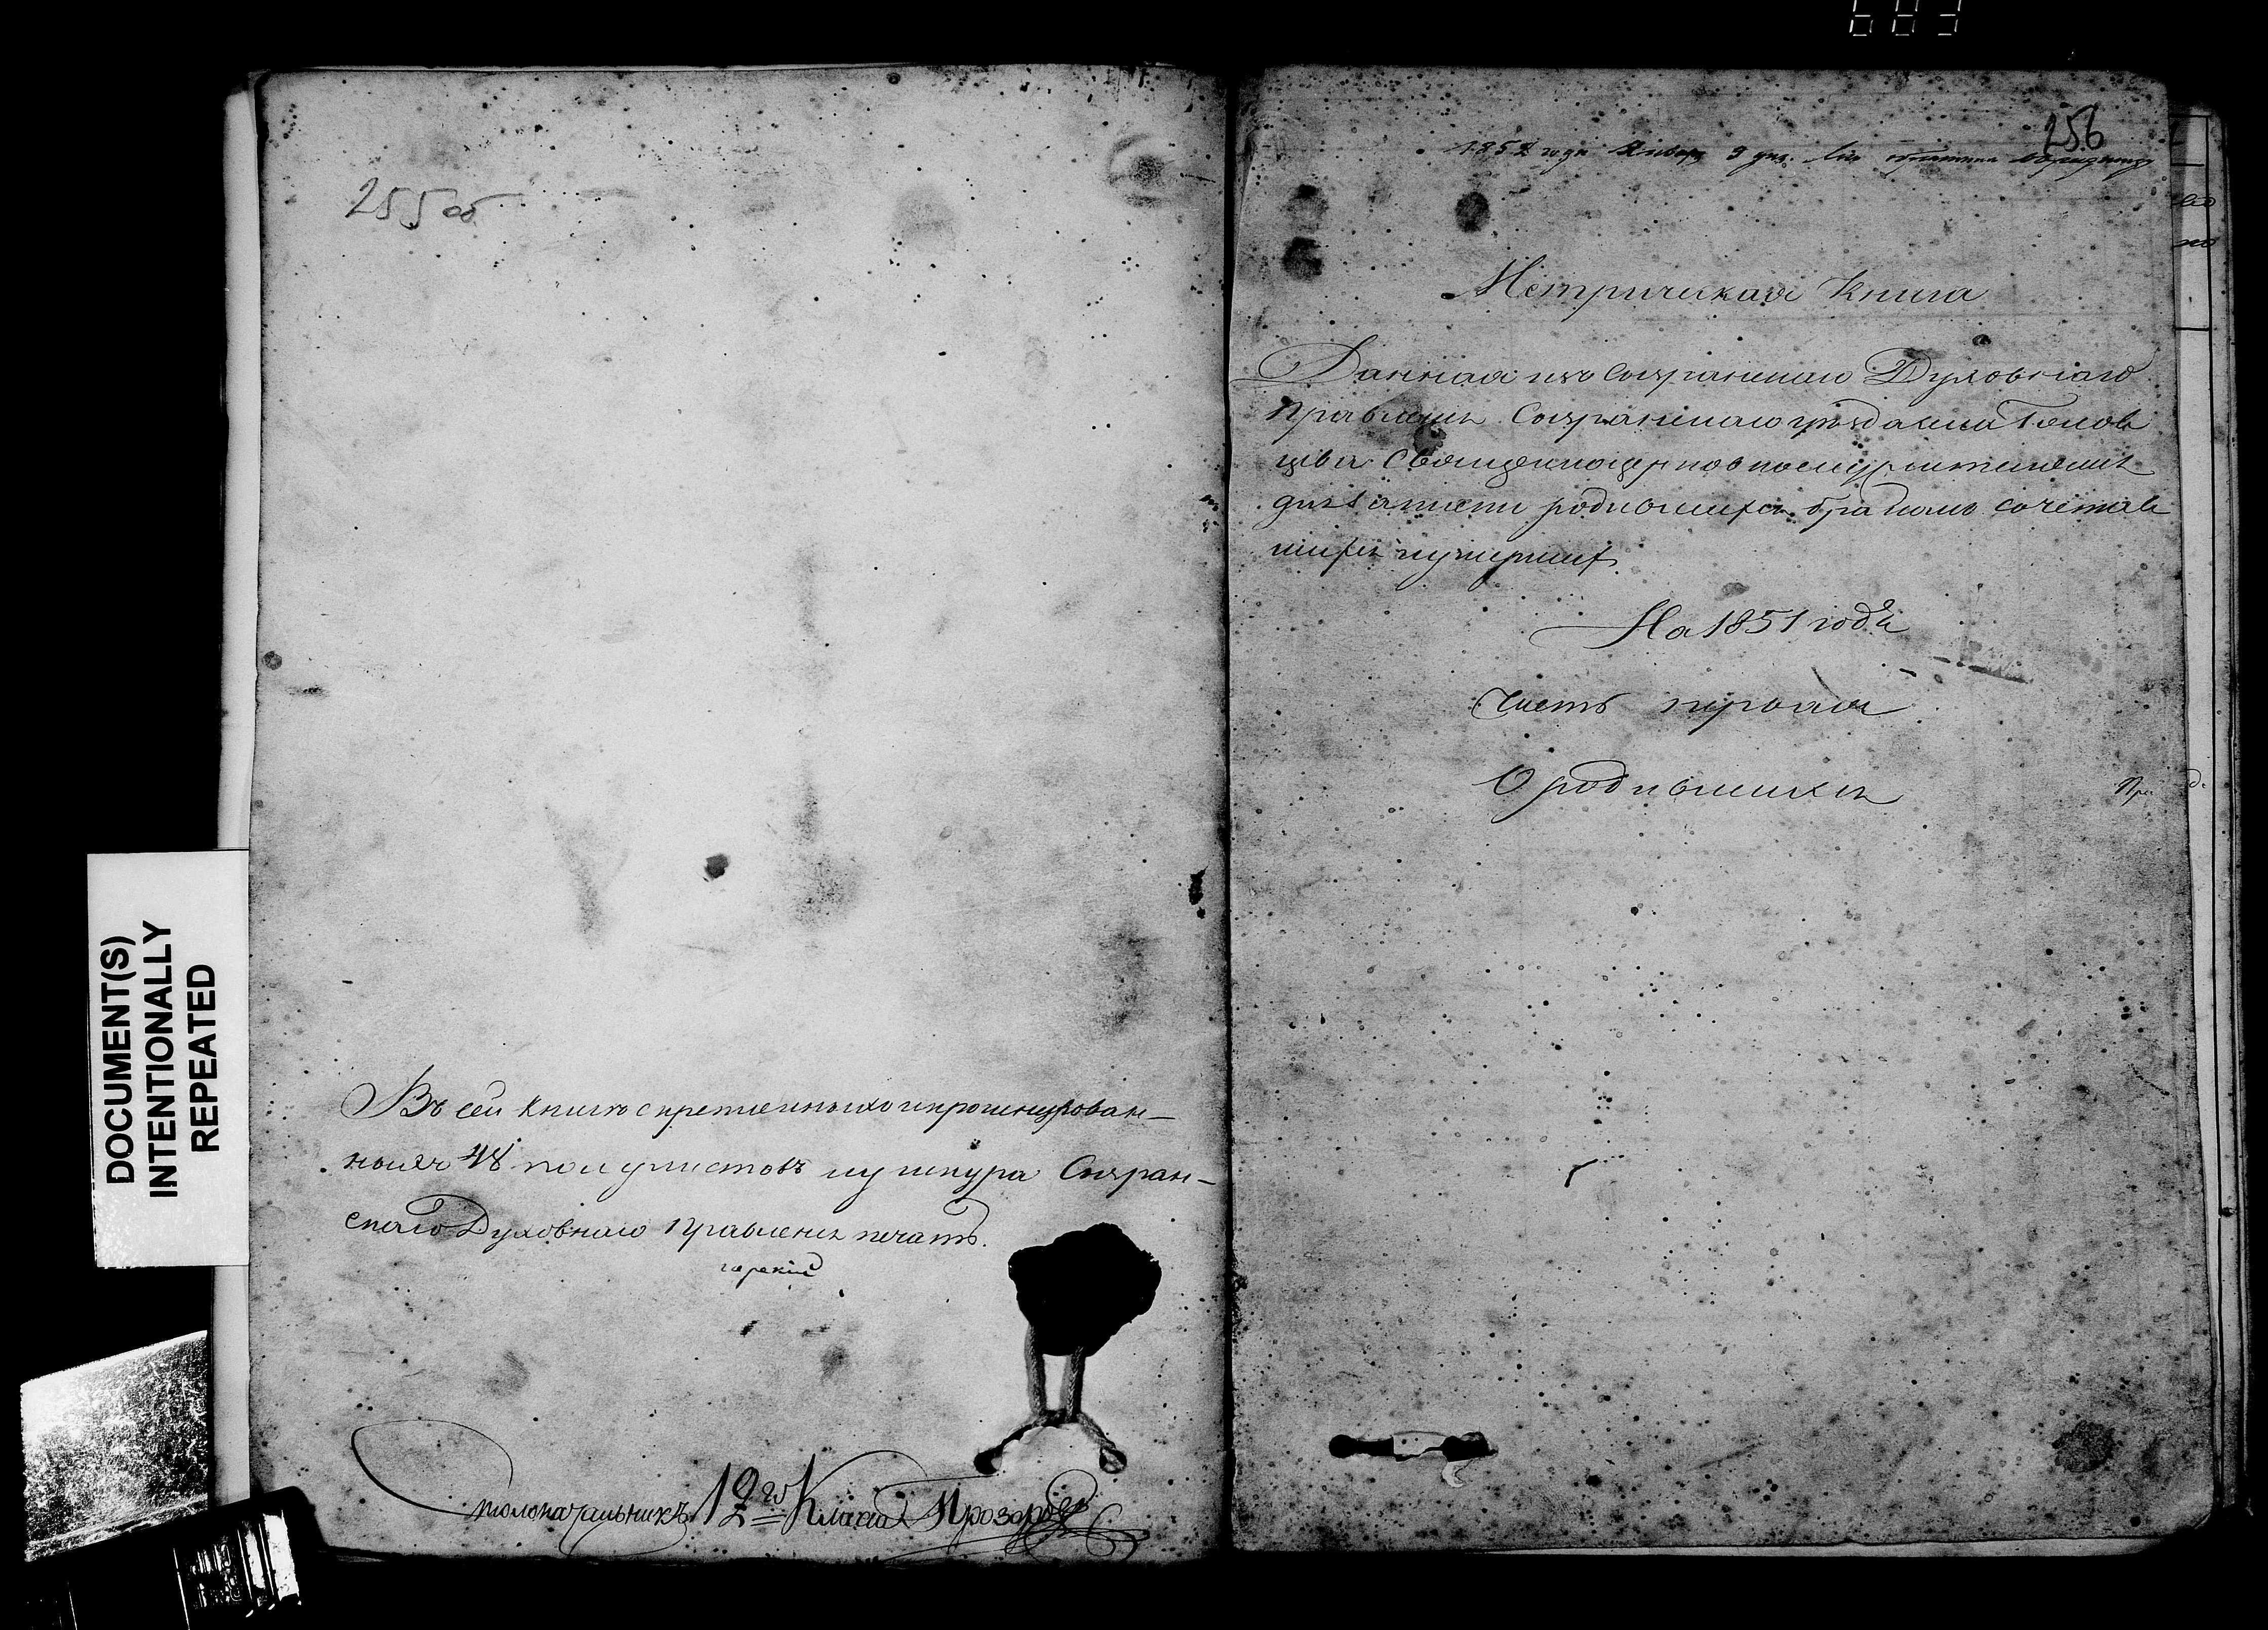 683
DOCUMENT(S)
INTENTIONALLY
REPEATED
255 об
Въ сей книгѣ скрепленныхъ и прошнурован-
ныхъ 48 полулистовъ и у шнура Сызран-
скаго Духовнаго Правленія печать.
Столоначальникъ 12го Класса
256
1852 года Января 9 дня.
Метрическая Книга
Данная изъ Сызранскаго Духовнаго
Правленія Сызранскаго уезда села
Священноцерковнослужителямъ
для записки родившихся бракомъ сочетав
шихся и умершихъ
На 1851 годъ
Часть первая
О родившихся